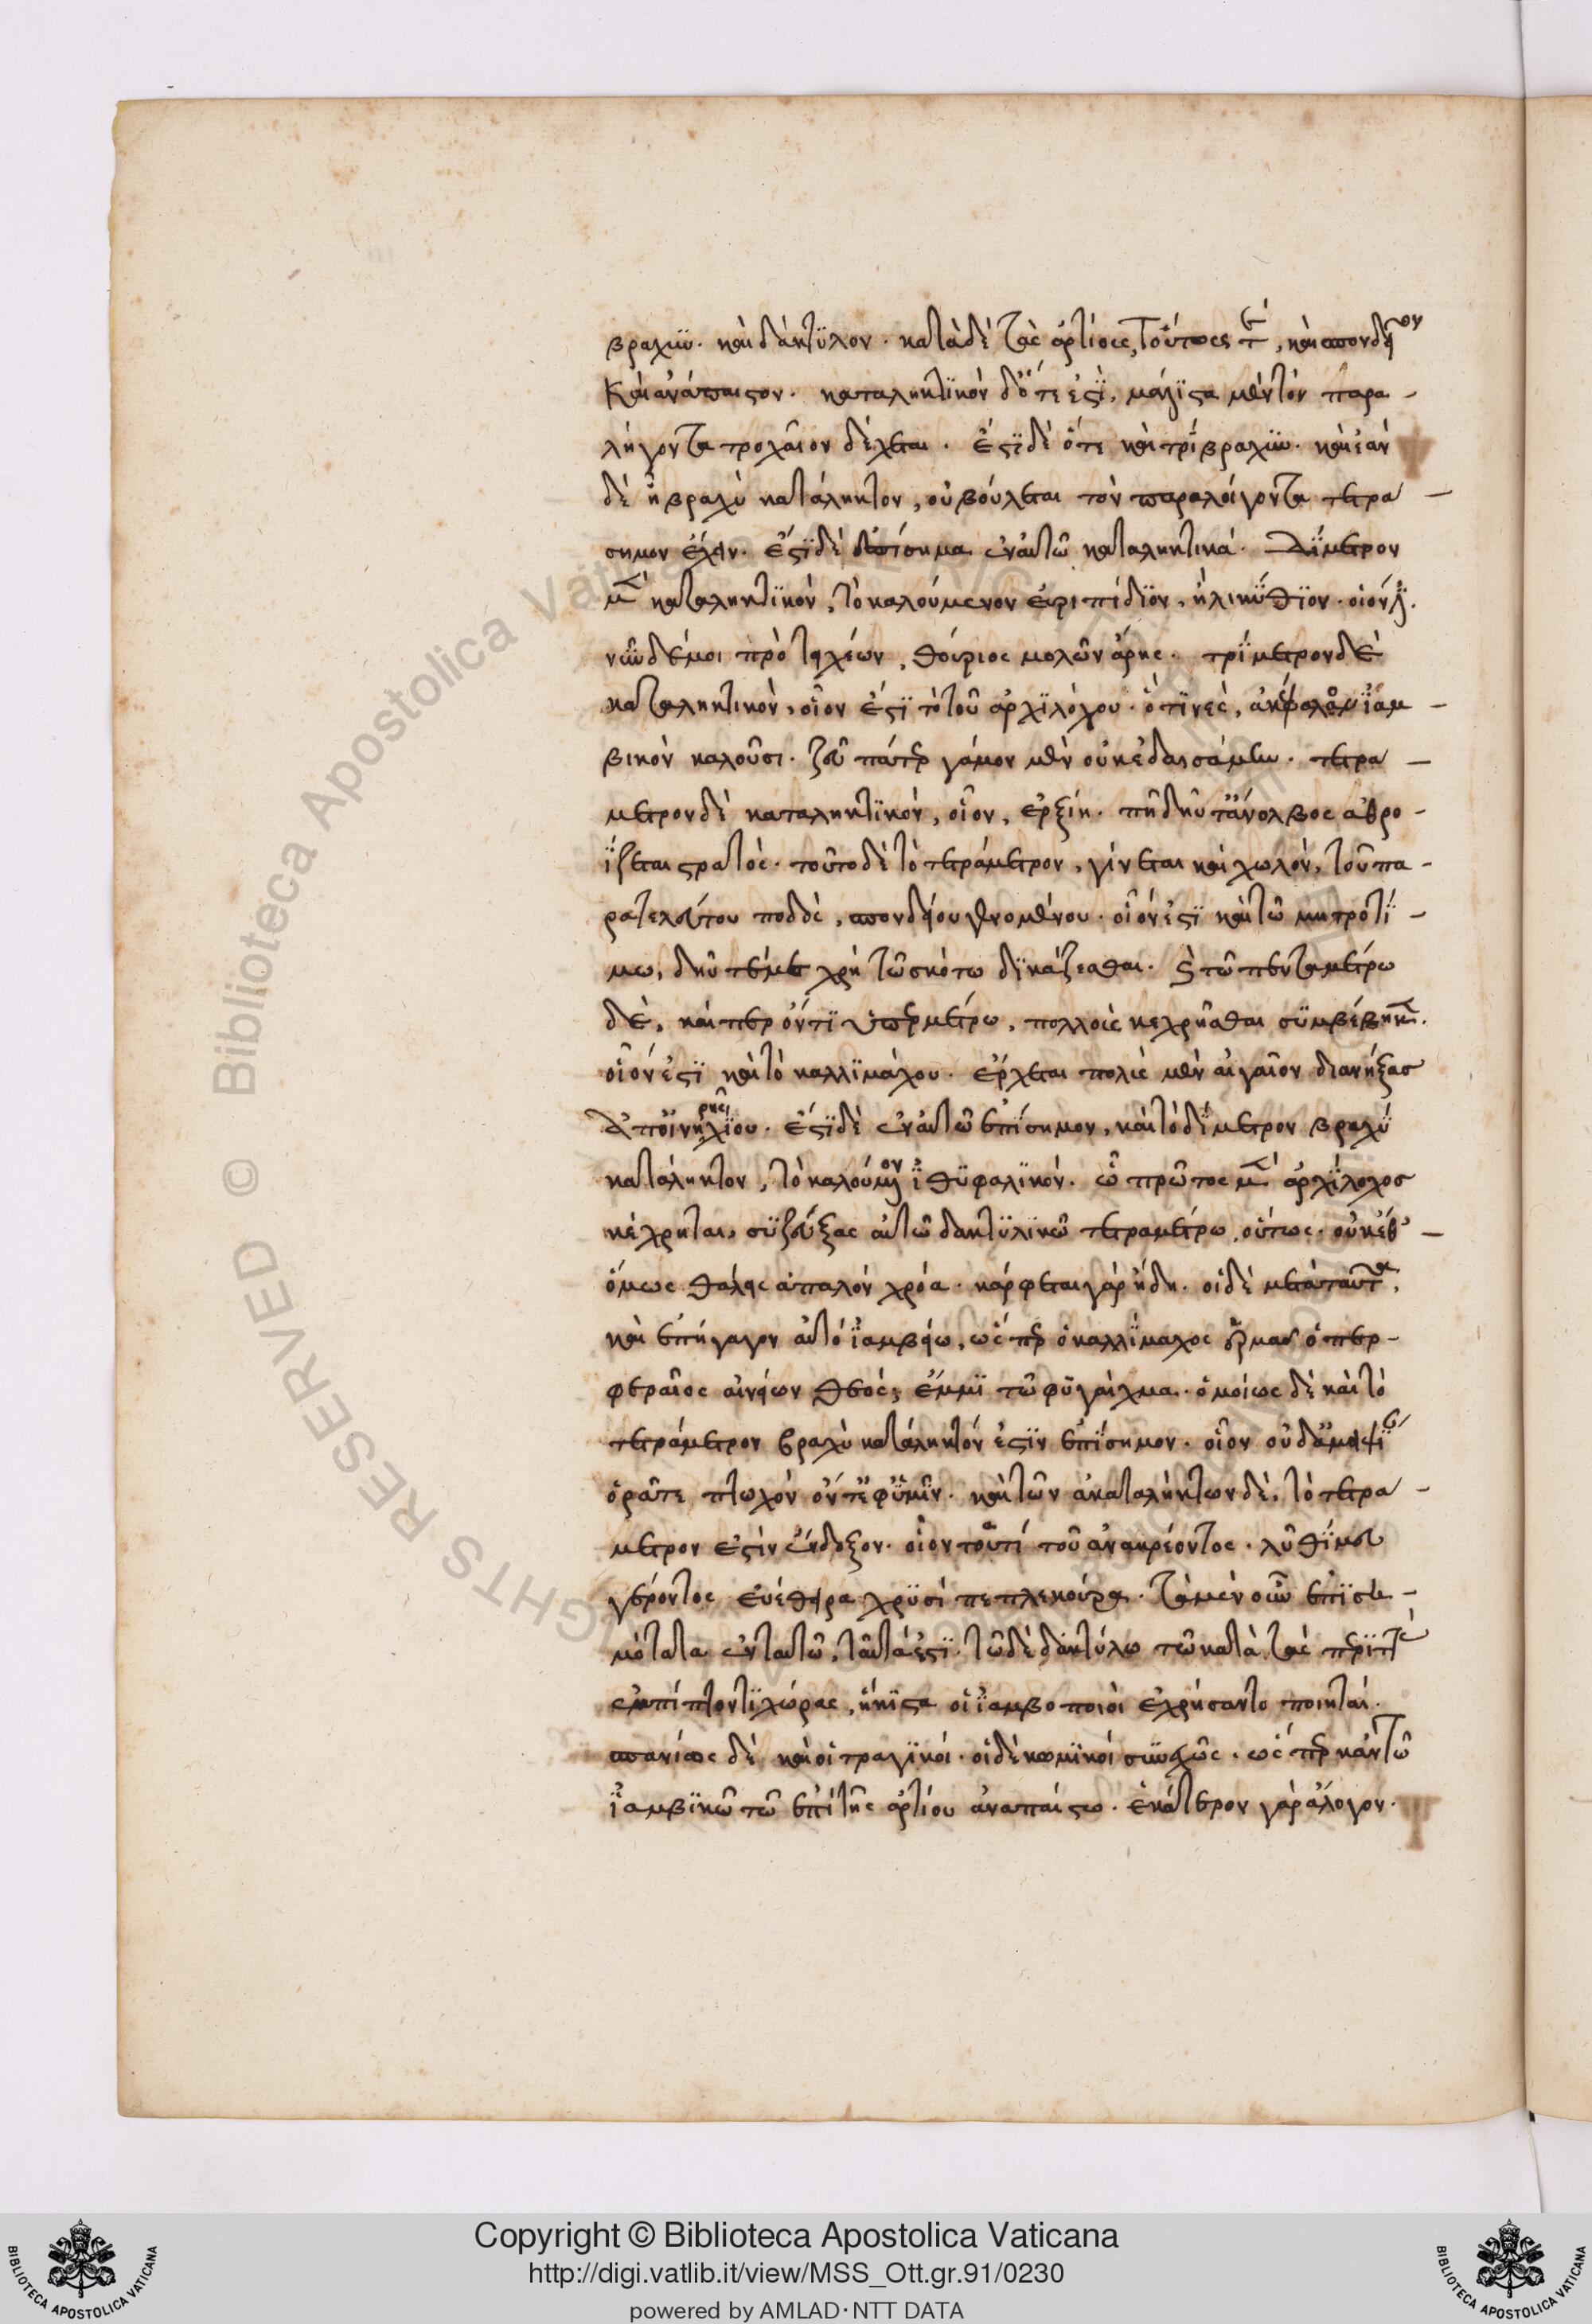 βραχυν. καὶ δάκτϋλον. κατὰ δὲ τὰς ἀρτίους, τούτους τε, καὶ σπονδεῖον
Καὶ ἀνάπαιστον. καταληκτϊκὸν δ' ὅτε ἐστϊ, μάλϊστα μὲν τὸν παρα -
λήγοντα τροχαῖον δέχεται. ἔστϊ δὲ ὅτε καὶ τρίβραχϋν. καὶ ἐὰν
δὲ ἦ βραχὺ κατάληκτον, οὐ βούλεται τὸν παραλήγοντα τετρα -
σημον ἔχειν. ἔστϊ δὲ ἐπίσημα ἐν αὐτῶ καταληκτικά. Δΐμετρον
μὲν καταληκτϊκὸν, τὸ καλούμενον εὐριπίδϊον, ἢ ληκΰθϊον. οἷον
νῦν δέ μοι πρὸ τειχέων, θούριος μολὼν ἄρης. τρΐμετρον δὲ
καταληκτικὸν, οἷον ἐστϊ τὸ τοῦ ἀρχϊλόχου. ὅ τϊνὲς, ἀκέφαλον ϊαμ -
βικὸν καλοῦσι. ζεῦ πάτερ γάμον μὲν οὐκ ἐδαισάμην. τετρα -
μετρον δὲ καταληκτϊκὸν, οἷον, ἐρξίη. πῆ δηῦτ' ἄνολβος ἀθρο -
ΐζεται στρατός. τοῦτο δὲ τὸ τετράμετρον, γίνεται καὶ χωλὸν, τοῦ πα -
ρατελεύτου ποδὸς, σπονδείου γενομένου. οἷον ἐστϊ καὶ τῶ μητροτί -
μω, δηῦτέ με χρὴ τῶ σκότω δϊκάζεσθαι. τῶ πενταμέτρω
δὲ, καίπερ ὄντϊ ὑπερμέτρω, πολλοὶς κεχρῆσθαι συμβέβηκεν.
οἷον ἐστϊ καὶ τὸ καλλϊμάχου. ἔρχεται πολὺς μὲν αἰγαῖον διανήξας
Ἀπ' οἰνηρῆς χΐου. ἔστϊ δὲ ἐν αὐτῶ ἐπίσημον, καὶ τὸ δΐμετρον βραχὺ
κατάληκτον, τὸ καλούμενον ΐθϋφαλϊκόν. ὧ πρῶτος μὲν ἀρχΐλοχος
κέχρηται, συζεύξας αὐτῶ δακτϋλϊκῶ τετραμέτρω, οὕτως. οὐκ ἔθ' -
ὅμως θάλεις ἁπαλὸν χρόα. κάρφεται γὰρ ἤδη. οἱ δὲ μετὰ ταῦτα,
καὶ ἐπήγαγον αὐτὸ ΐαμβείω, ὥσπερ ὁ καλλΐμαχος ἑρμᾶς ὁ περ -
φεραῖος αἰνείων θεός, ἔμμϊ τῶ φϋγαίχμα. ὁμοίως δὲ καὶ τὸ
τετράμετρον βραχὺ κατάληκτόν ἐστϊν ἐπΐσημον. οἷον οὐδ' ἀμειψΐας
ὁρᾶτε πτωχὸν ὄντ' ἐφ' ὑμῖν. καὶ τῶν ἀκαταλήκτων δὲ, τὸ τετρα -
μετρον ἐστὶν ἔνδοξον. οἷον τουτί τοῦ ἀνακρέοντος. κλῦθΐ μευ
γέροντος εὐέθειρα χρϋσόπεπλε κούρα. τὰ μὲν οὖν ἐπϊση -
μότατα ἐν ταυτῶ, ταῦτά ἐστϊ. τῶ δὲ δακτύλω τῶ κατὰ τὰς περιττὰς
ἐμπίπτοντϊ χώρας, ἥκϊστα οἱ ΐαμβοποιοὶ ἐχρήσαντο ποιηταί.
σπανίως δὲ καὶ οἱ τραγϊκοί. οἱ δὲ κωμϊκοί συνεχῶς. ὥσπερ κἂν τῶ
ϊαμβϊκῶ τῶ ἐπὶ τῆς ἀρτίου ἀναπαίστω. ἑκάτερον γὰρ ἄλογον.
Copyright © Biblioteca Apostolica Vaticana
http://digi.vatlib.it/view/MSS_Ott.gr.91/0230
powered by AMLAD·NTT DATA